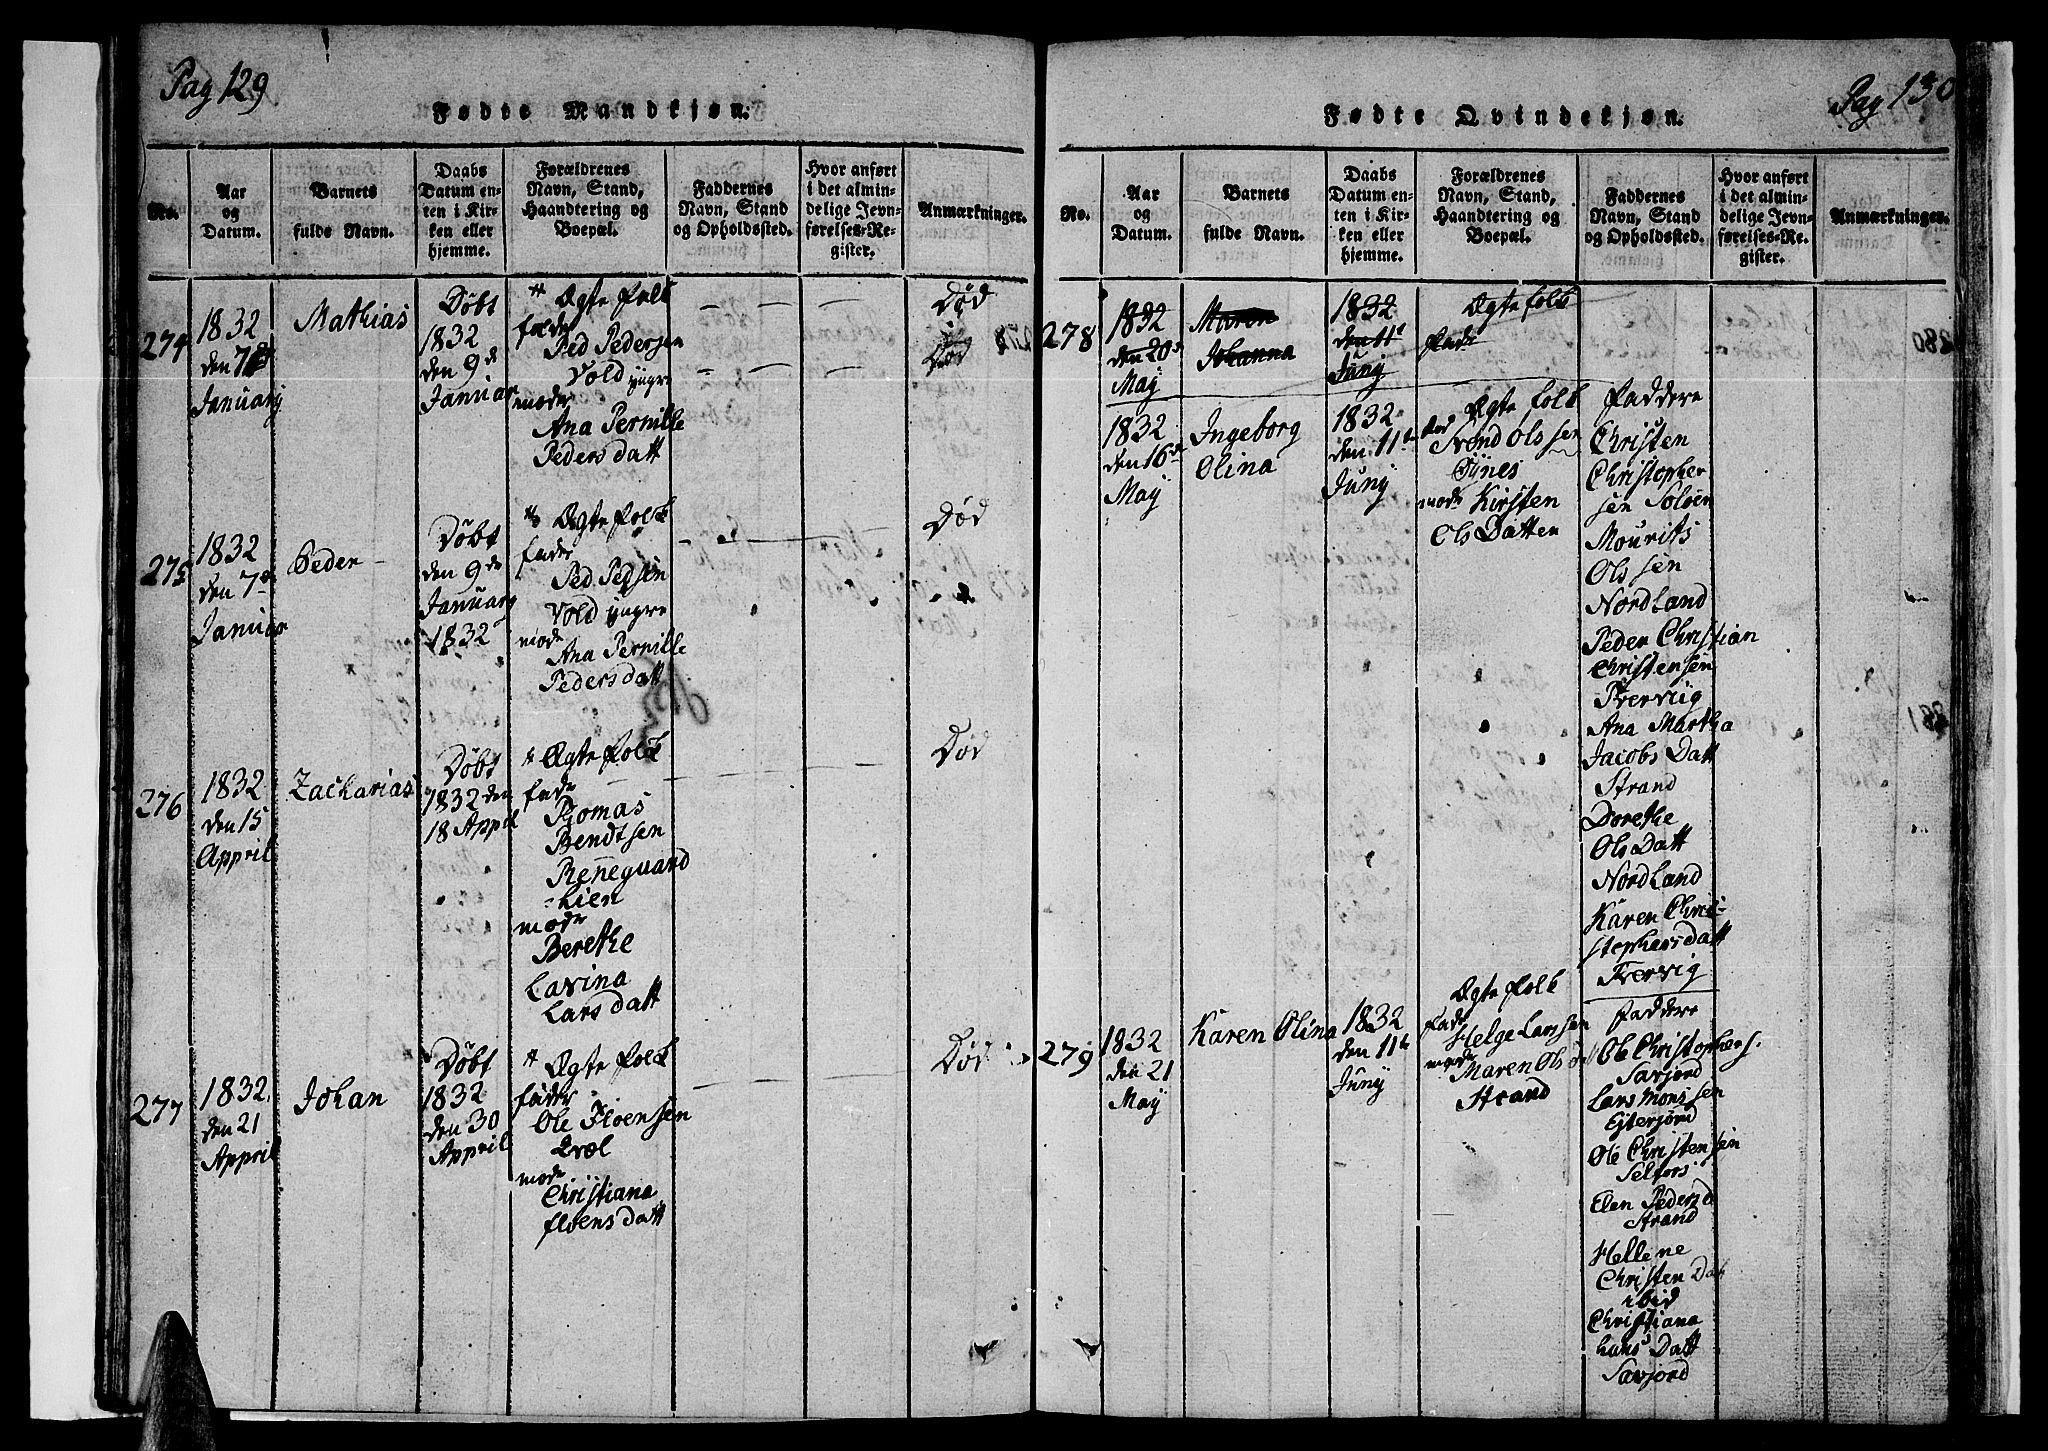 Pag 129
Fødte Mandkjøn.
No.
Aar
og
Datum.
Barnets
fulde Navn.
Daabs
Datum en-
ten i Kir-
ken eller
hjemme.
Forældrenes
Navn, Stand,
Haandtering og
Boepæl.
Faddernes
Navn, Stand
og Opholdssted.
Hvor anført
i det almin-
delige Jevn-
førelses-Re-
gister.
Anmærkninger.
274
1832
den 7de
Januarij
Mathias
Døbt
1832
den 9de
Januar
Ægte folk
fader
Ped Pedersen
Vold yngre
moder
Ana Pernille
Pedersdatt
Død
Død
275
1832
den 7de
Januar
Peder
Døbt
den 9de
Januarij
1832
Ægte folk
fader
Ped Pedsen
Vold yngre
mode
Ana Pernille
Pedersdatt
Død
276
1832
den 15
Appril
Zacharias
Døbt
1832 den
18 Appril
Ægte folk
fade
Thomas
Bendtsen
Reneguard
Lien
moder
Berethe
Lavina
Larsdatt
Død
277
1832
den 21
Appril
Johan
Døbt
1832
den 30
Appril
Ægte folk
fader
Ole Floensen
Qvæl
mode
Christiana
floensdatt
Død
Pag 130
Fødte Qvindekjøn.
No.
Aar
og
Datum.
Barnets
fulde Navn.
Daabs
Datum en-
ten i Kir-
ken eller
hjemme.
Forældrenes
Navn, Stand,
Haandtering og
Boepæl.
Faddernes
Navn, Stand
og Opholdssted.
Hvor anført
i det almin-
delige Jevn-
førelses-Re-
gister.
Anmærkninger.
278
1832
den 20de
May
Maren
Johanna
1832
den 11
Junij
Ægte folk
fade
1832
den 16de
May
Ingeborg
Olina
1832
den 11te
Junij
Ægte folk
Svend Olssen
Øynes
mode Kirsten
Ols Datten
Faddere
Christen
Christopher
sen Soløen
Mourits
Olssen
Nordland
Peder Christian
Christensen
Fvervig
Ana Martha
Jacobs Datt
Strand
Dorethe
Ols Datt
Nordland
Karen Chri-
stophersdatt
Fvervig
279
1832
den 21
May
Karen Olina
1832
den 11te
Junij
Ægte folk
fade
Helge Larssen
mode
Maren Ols d
Strand
Faddere
Ole Christophers.
Savjord
Lars Monssen
Eiterjord
Ole Christensen
Selfors
Elen Pedersd
Strand
Hellene
Christen Dat
ibid
Christiana
Lars Datt
Savjord